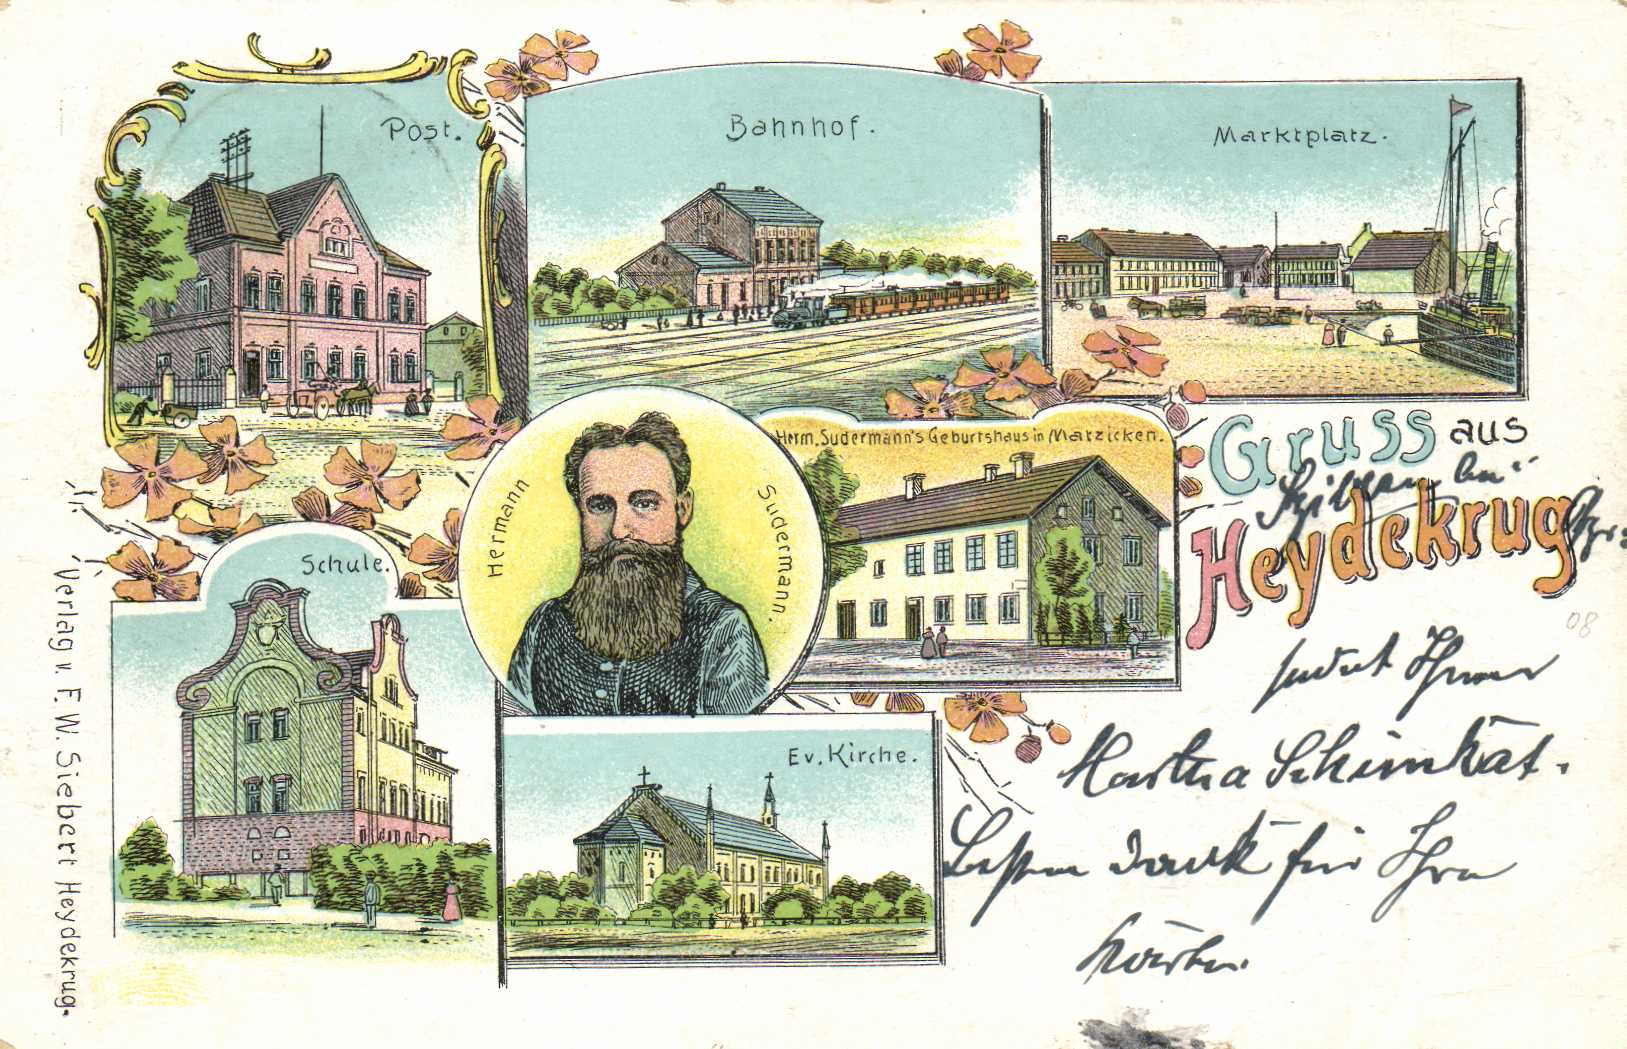 Post.
Bahnhof.
Marktplatz.
Herm. Sudermann's Geburtshaus in Matzicken.
Gruss aus
Heydekrug
Hermann
Sudermann.
Schule.
Ev. Kirche.
Verlag v. F. W. Siebert Heydekrug.
08
sendet Ihnen
Martha Schimkat.
Besten Dank für Ihre
Karten.